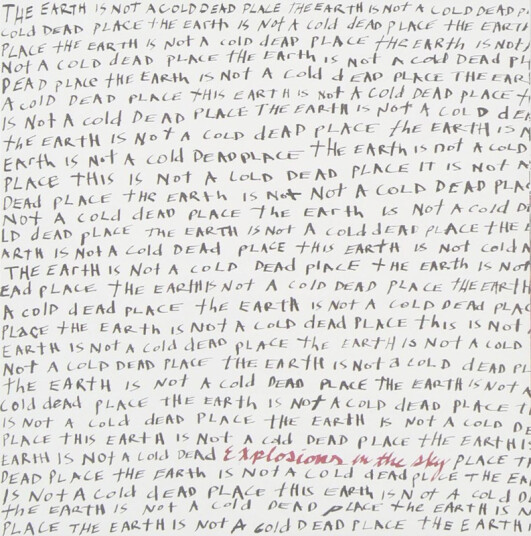 THE EARTH IS NOT A COLD DEAD PLACE THE EARTH IS NOT A COLD DEAD P
COLD DEAD PLACE THE EARTH IS NOT A COLD DEAD PLACE THE EARTH
PLACE THE EARTH IS NOT A COLD DEAD PLACE THE EARTH IS NOT
NOT A COLD DEAD PLACE THE EARTH IS NOT A COLD DEAD PL
DEAD PLACE THE EARTH IS NOT A COLD DEAD PLACE THE EAR
A COLD DEAD PLACE THIS EARTH IS NOT A COLD DEAD PLACE T
IS NOT A COLD DEAD PLACE THE EARTH IS NOT A COLD DE
THE EARTH IS NOT A COLD DEAD PLACE THE EARTH IS A
EARTH IS NOT A COLD DEAD PLACE THE EARTH IS NOT A COLD
PLACE THIS IS NOT A COLD DEAD PLACE IT IS NOT A
DEAD PLACE THE EARTH IS NOT NOT A COLD DEAD PLA
NOT A COLD DEAD PLACE THE EARTH IS NOT A COLD D
LD DEAD PLACE THE EARTH IS NOT A COLD DEAD PLACE THE E
ARTH IS NOT A COLD DEAD PLACE THIS EARTH IS NOT COLD A
THE EARTH IS NOT A COLD DEAD PLACE THE EARTH IS NOT
EAD PLACE THE EARTH IS NOT A COLD DEAD PLACE THE EARTH
A COLD DEAD PLACE THE EARTH IS NOT A COLD DEAD PLAC
PLACE THE EARTH IS NOT A COLD DEAD PLACE THIS IS NOT
EARTH IS NOT A COLD DEAD PLACE THE EARTH IS NOT A COLD
NOT A COLD DEAD PLACE THE EARTH IS NOT A COLD DEAD PL
THE EARTH IS NOT A COLD DEAD PLACE THE EARTH IS NOT A
COLD DEAD PLACE THE EARTH IS NOT A COLD DEAD PLACE T
IS NOT A COLD DEAD PLACE THE EARTH IS NOT A COLD DE
PLACE THIS EARTH IS NOT A COLD DEAD PLACE THE EARTH IS
EARTH IS NOT A COLD DEAD Explosions in the sky PLACE T
DEAD PLACE THE EARTH IS NOT A COLD DEAD PLACE THE EA
IS NOT A COLD DEAD PLACE THIS EARTH IS NOT A COLD D
THE EARTH IS NOT A COLD DEAD PLACE THE EARTH IS NO
PLACE THE EARTH IS NOT A COLD DEAD PLACE THE EARTH